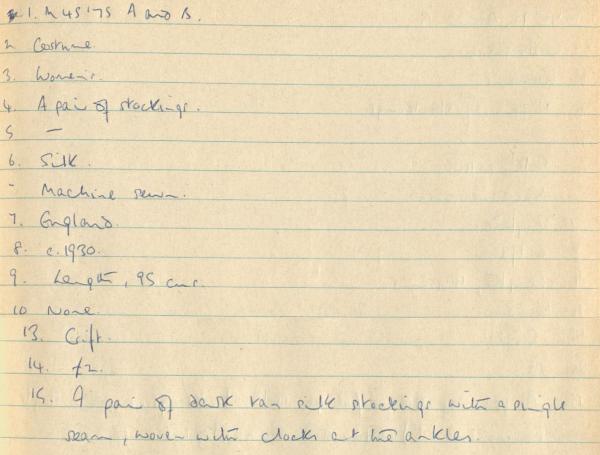 1. M 45'75 A and B.
2. Costume.
3. Women's.
4. A pair of stockings.
5 —
6. Silk.
- Machine sewn.
7. England.
8. c.1930.
9. Length, 95 cms.
10 None.
13. Gift.
14. £2.
15. A pair of dark tan silk stockings with a single
seam, woven with clocks at the ankles.